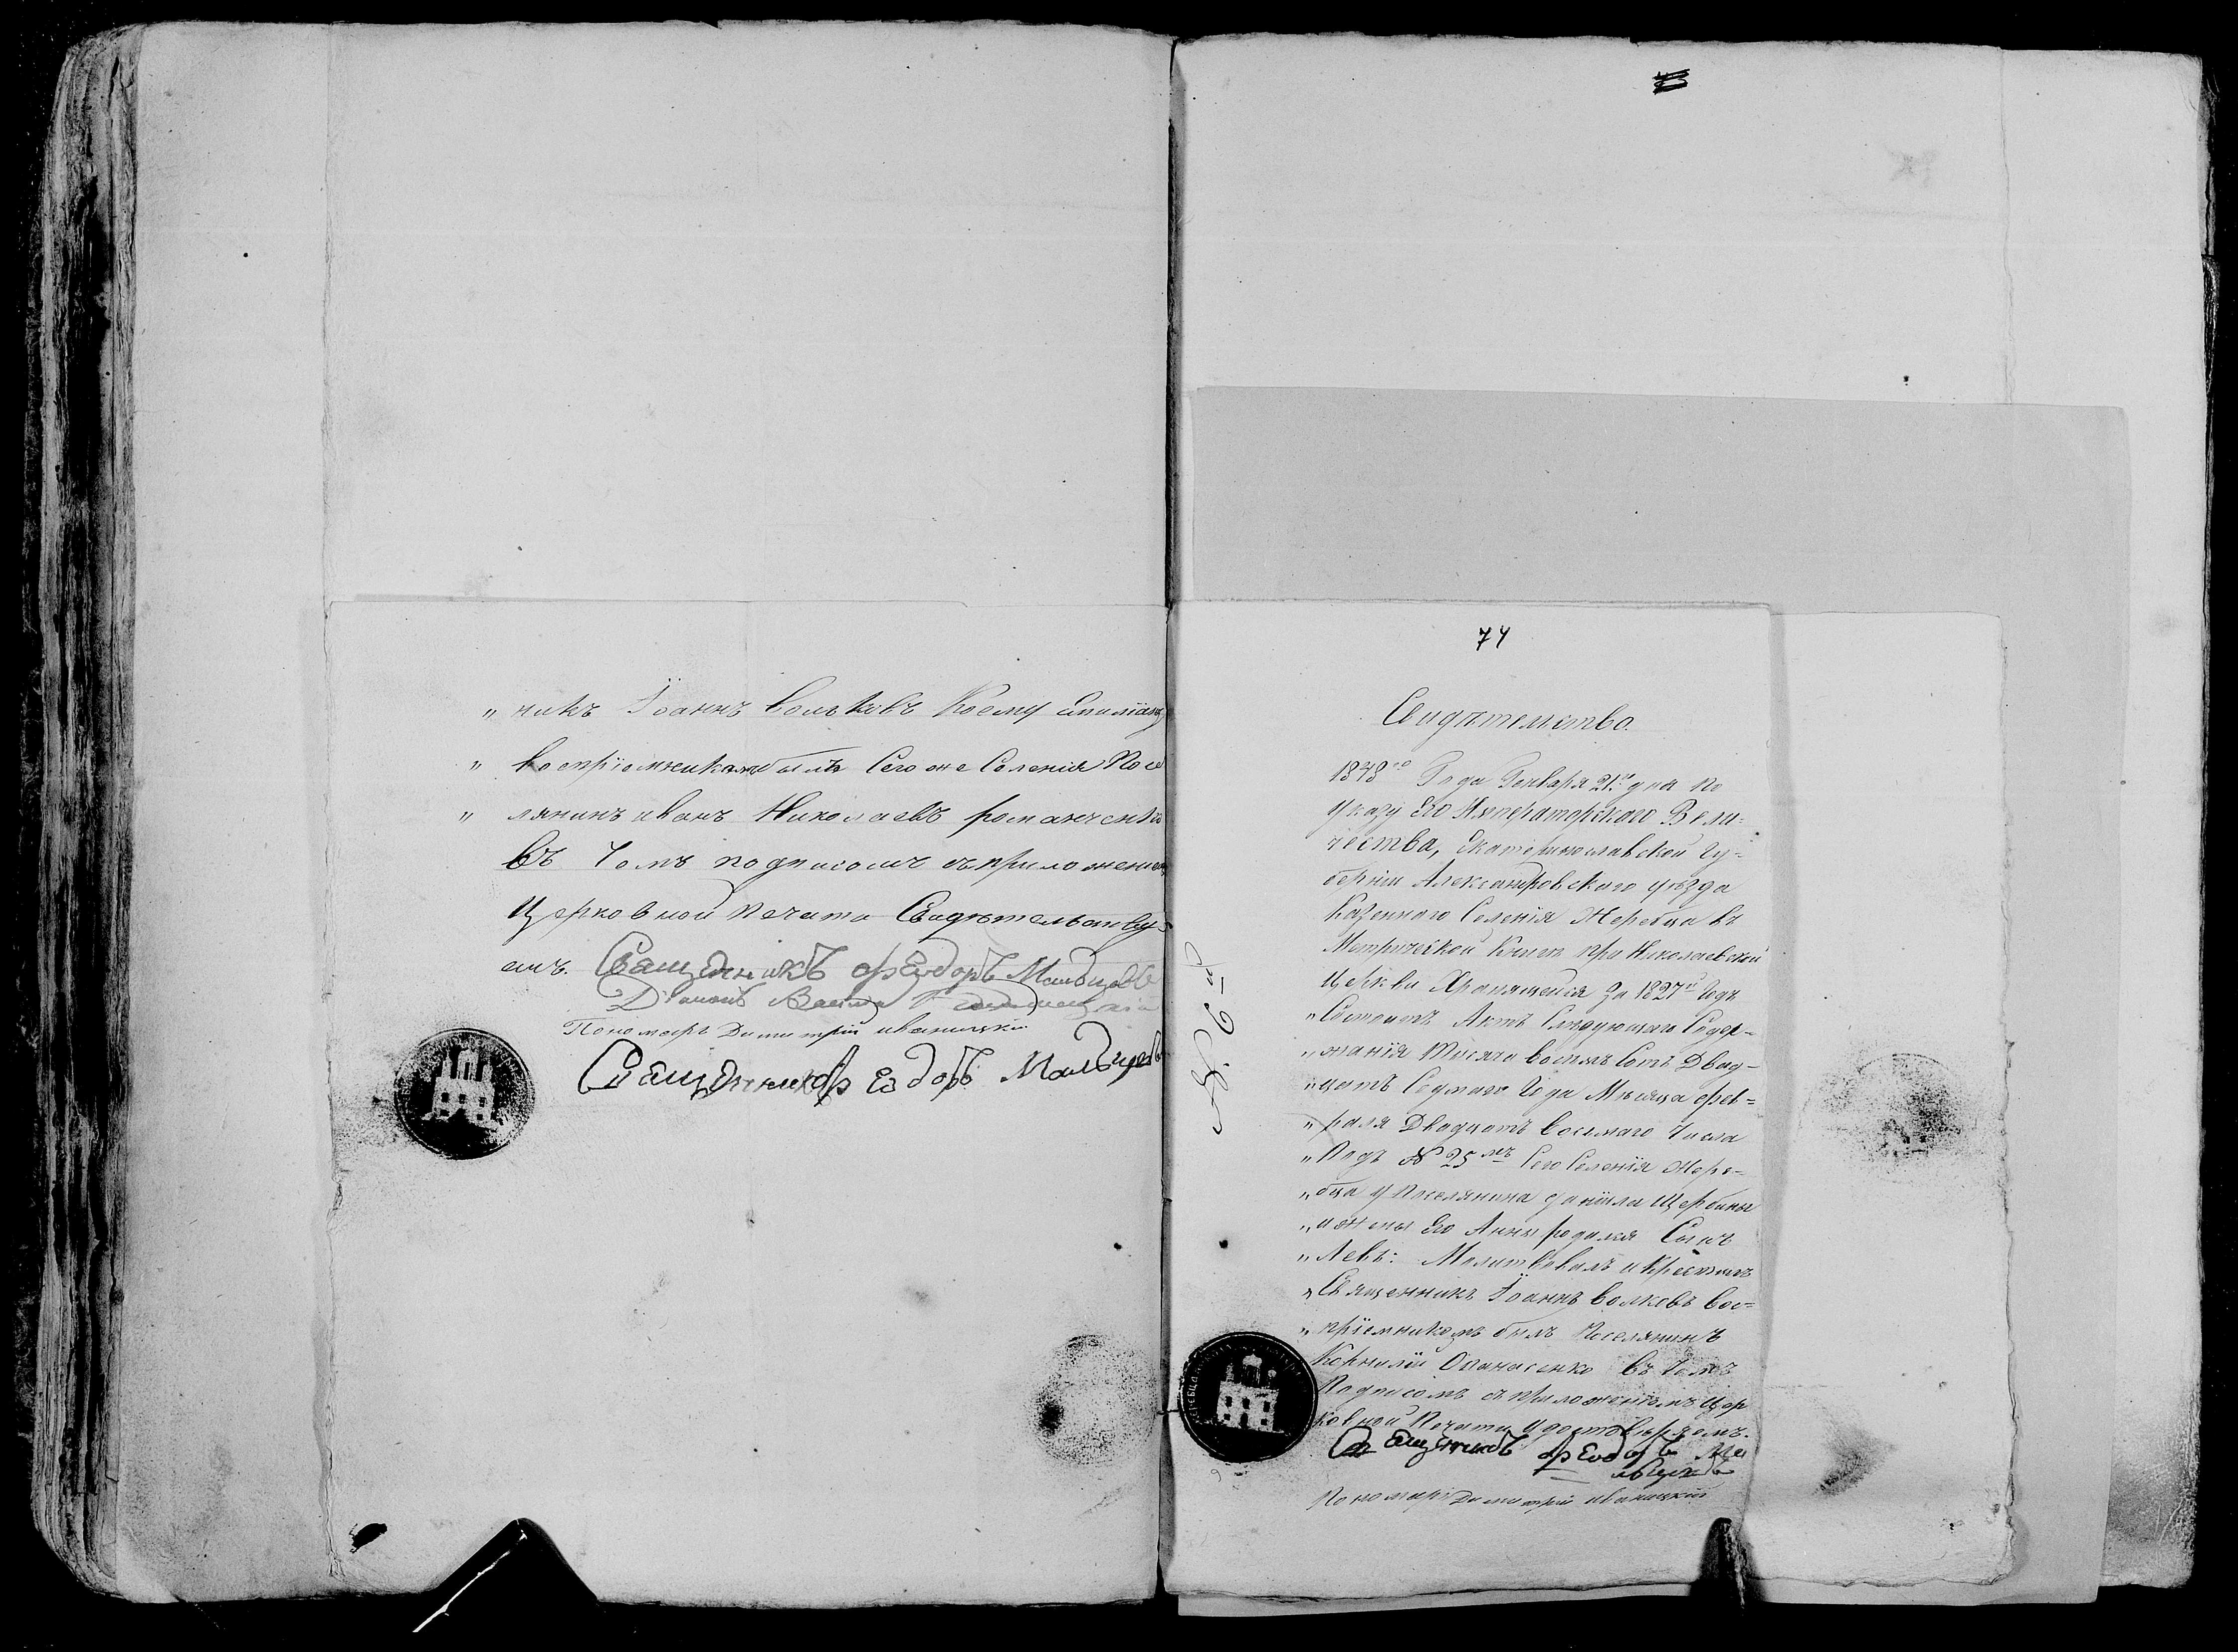 „ никъ Іоаннъ Волковъ Коему
„ воспріемникомъ былъ Сего же Селенія Посе
„ лянинъ иванъ Николаевъ романченко
Въ Томъ подписомъ съ приложеніем
Церковной печати Свидѣтельству-
емъ. Священникъ Феодоръ Мальцевъ
Діаконъ Василій
Пономарь Димитрій иваницкій
Священникъ Феодоръ Мальцевъ
74
Свидѣтельство.
1848го Года Генваря 21го дня по
указу Его Императорскаго Вели=
чества, Екатеринославской Гу=
берніи Александровскаго уѣзда
Казеннаго Селенія Жеребца въ
Метрической Книгѣ при Николаевской
Церкви Хранящейся За 1827й Годъ
„ Состоитъ Актъ Слѣдующаго Содер=
„ жанія Тысяча восемь Сотъ Двад-
„ цать Седмаго Года Мѣсяца фев=
„ раля Двадцать восьмаго Числа
„ Подъ № 25мъ Сего Селенія Жере=
„ бца у Поселянина данійла Щербины
„ и жены Его Анны родился Сынъ
„ Левъ: Молитвовалъ и Крестилъ
„ Священникъ Іоаннъ Волковъ Вос=
„ пріемникомъ былъ Поселянинъ
Корнилій Опанасенко Въ томъ
Подписомъ съ приложеніемъ Цер
ковной Печати Удостовѣряемъ.
Священникъ Феодоръ Ма
льцевъ
Пономарь Димитрій иваницкій